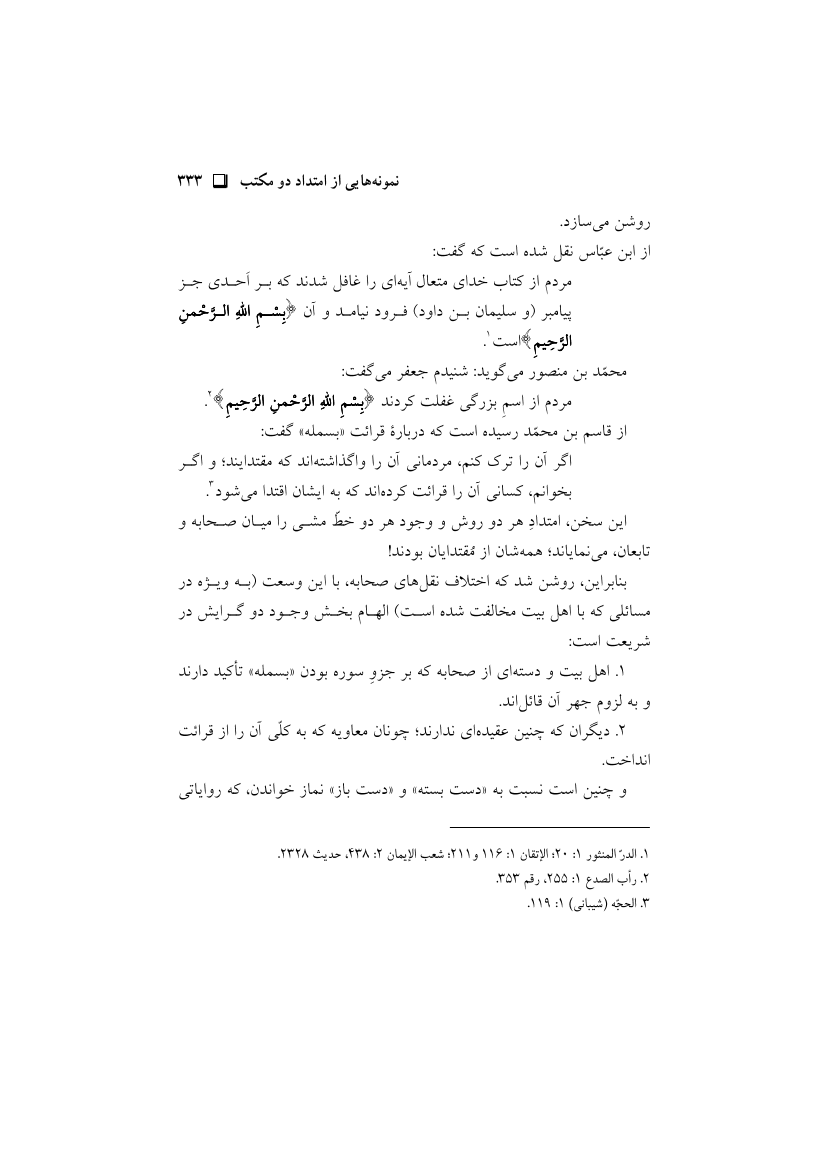 نمونه‌هایی از امتداد دو مکتب ❑ ۳۳۳
روشن می‌سازد.
از ابن عبّاس نقل شده است که گفت:
مردم از کتاب خدای متعال آیه‌ای را غافل شدند که بـر اَحـدی جـز
پیامبر (و سلیمان بـن داود) فـرود نیامـد و آن ﴿بِسْـمِ اللهِ الـرَّحْمنِ
الرَّحِیمِ﴾است۱.
محمّد بن منصور می‌گوید: شنیدم جعفر می‌گفت:
مردم از اسمِ بزرگی غفلت کردند ﴿بِسْمِ اللهِ الرَّحْمنِ الرَّحِیمِ﴾۲.
از قاسم بن محمّد رسیده است که دربارهٔ قرائت «بسمله» گفت:
اگر آن را ترک کنم، مردمانی آن را واگذاشته‌اند که مقتدایند؛ و اگـر
بخوانم، کسانی آن را قرائت کرده‌اند که به ایشان اقتدا می‌شود۳.
این سخن، امتدادِ هر دو روش و وجود هر دو خطّ مشـی را میـان صـحابه و
تابعان، می‌نمایاند؛ همه‌شان از مُقتدایان بودند!
بنابراین، روشن شد که اختلاف نقل‌های صحابه، با این وسعت (بـه ویـژه در
مسائلی که با اهل بیت مخالفت شده اسـت) الهـام بخـش وجـود دو گـرایش در
شریعت است:
۱. اهل بیت و دسته‌ای از صحابه که بر جزوِ سوره بودن «بسمله» تأکید دارند
و به لزوم جهر آن قائل‌اند.
۲. دیگران که چنین عقیده‌ای ندارند؛ چونان معاویه که به کلّی آن را از قرائت
انداخت.
و چنین است نسبت به «دست بسته» و «دست باز» نماز خواندن، که روایاتی
۱. الدرّ المنثور ۱: ۲۰؛ الإتقان ۱: ۱۱۶ و۲۱۱؛ شعب الإیمان ۲: ۴۳۸، حدیث ۲۳۲۸.
۲. رأب الصدع ۱: ۲۵۵، رقم ۳۵۳.
۳. الحجّه (شیبانی) ۱: ۱۱۹.